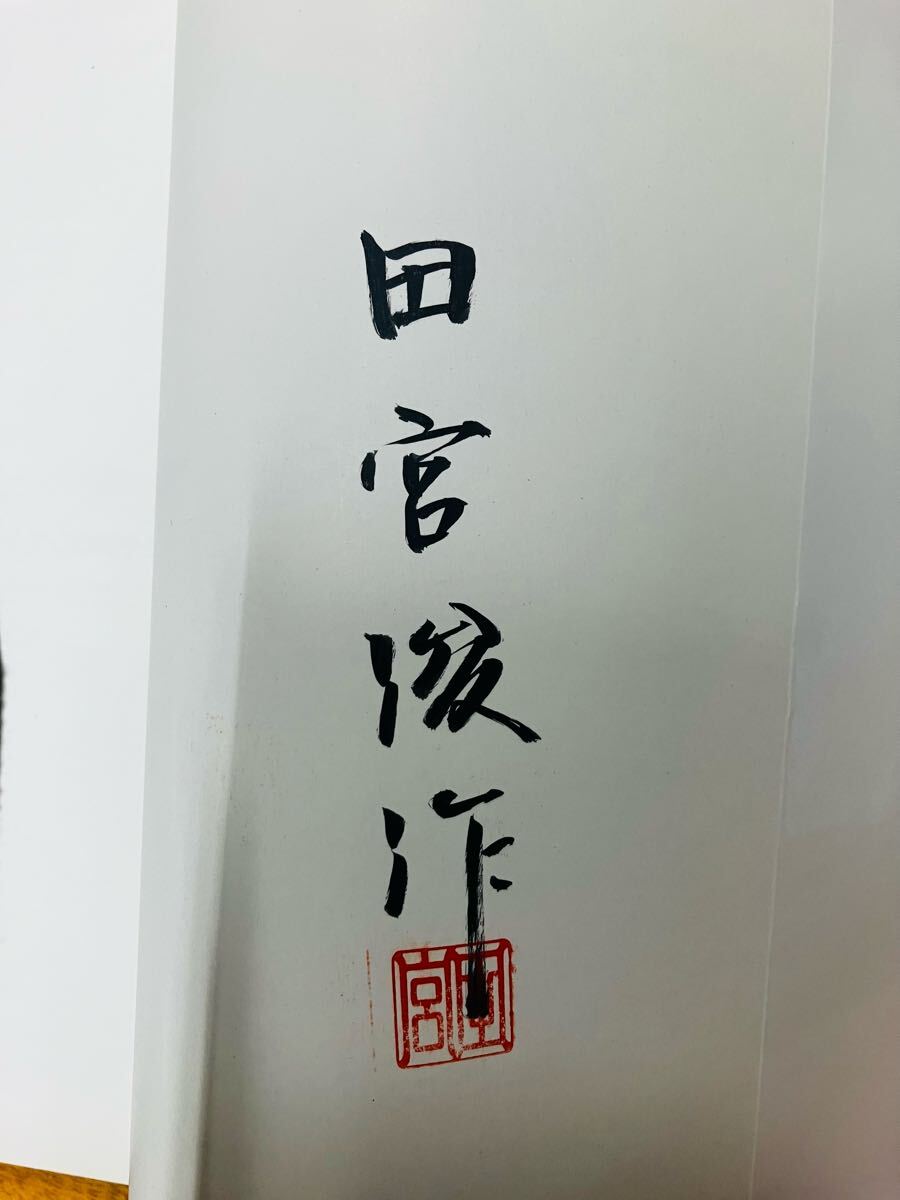 田宮俊作
田宮